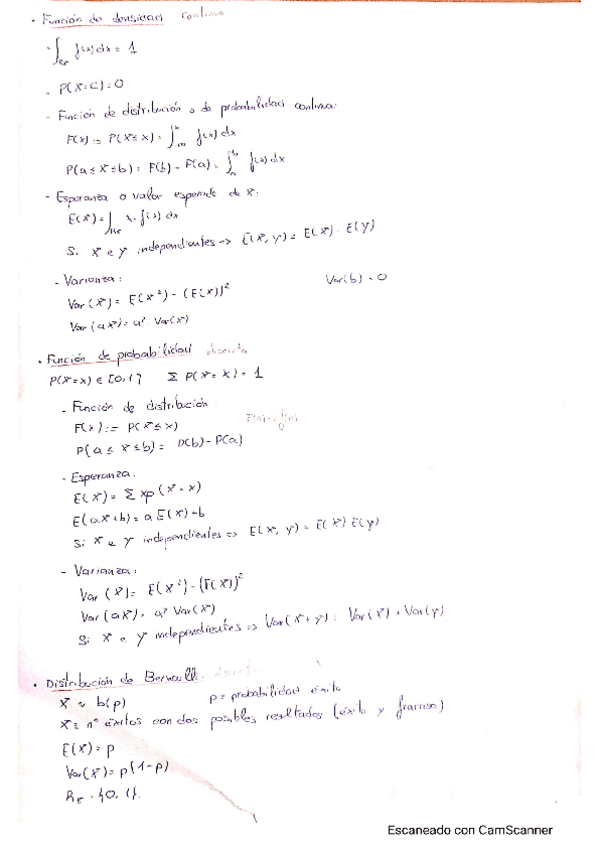 • Función de densidad continua
- ∫_Rx f(x)dx = 1
- P(X=c)=0
- Función de distribución o de probabilidad continua:
F(x):= P(X≤x)= ∫_-∞^x f(x)dx
P(a≤X≤b)= F(b)-F(a)= ∫_a^b f(x)dx
- Esperanza o valor esperado de X:
E(X)= ∫_Rx x·f(x)dx
Si X e Y independientes => E(X,Y)= E(X)·E(Y)
- Varianza: Var(b)=0
Var(X)= E(X²)-(E(X))²
Var(aX)= a² Var(X)
• Función de probabilidad discreta
P(X=x)∈[0,1] Σ P(X=x)=1
- Función de distribución
F(x):= P(X≤x)
P(a≤X≤b)= P(b)-P(a)
- Esperanza:
E(X)= Σ xp(X=x)
E(aX+b)= aE(X)+b
Si X e Y independientes => E(X,Y)= E(X)E(Y)
- Varianza:
Var(X)= E(X²)-(E(X))²
Var(aX)= a² Var(X)
Si X e Y independientes => Var(X+Y)= Var(X)+Var(Y)
• Distribución de Bernoulli: discreta
X ~ b(p) p= probabilidad éxito
X= nº éxitos con dos posibles resultados (éxito y fracaso)
E(X)=p
Var(X)=p(1-p)
Rx={0,1}
Escaneado con CamScanner